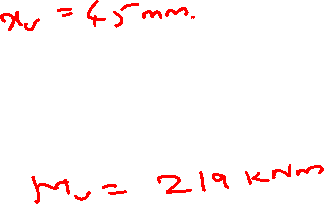 xᵤ = 45 mm.
Mᵤ = 219 kNm